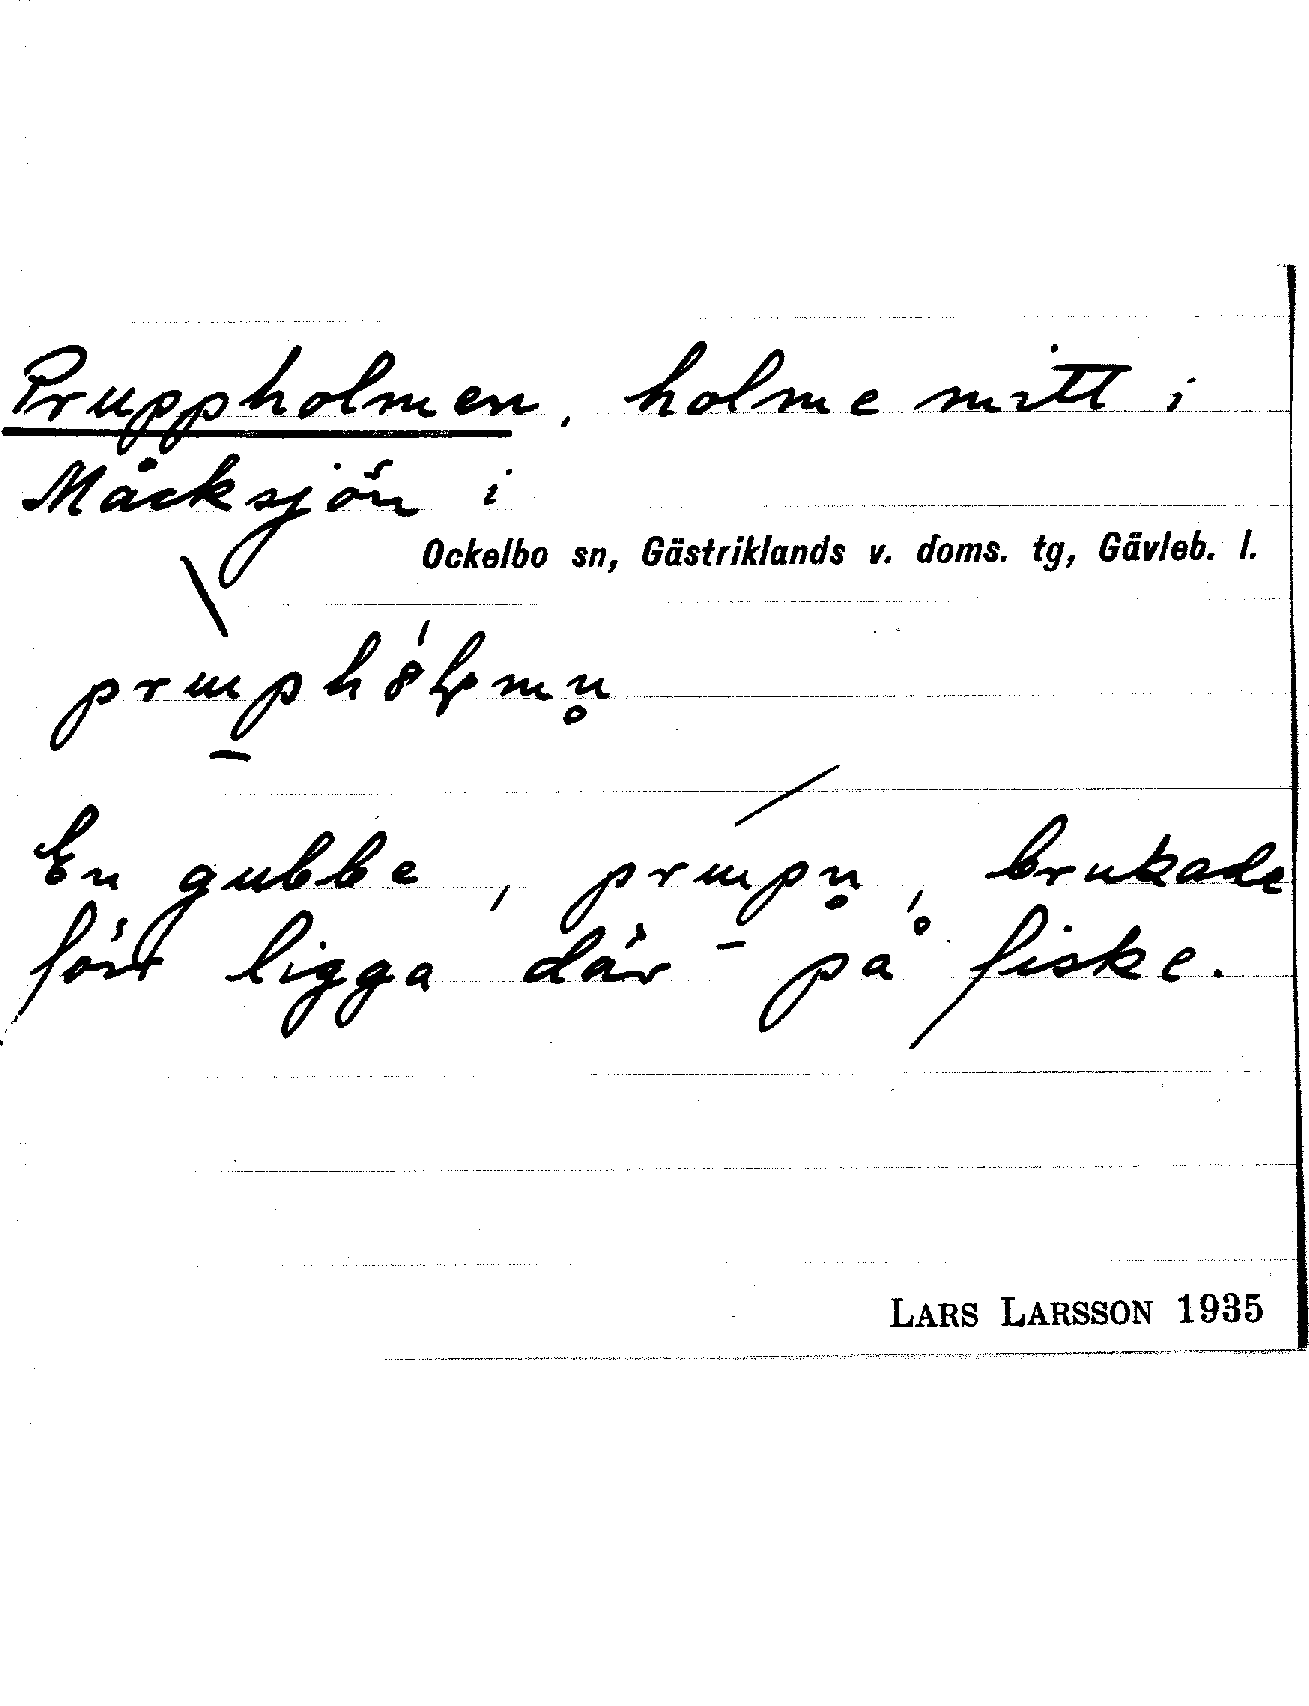 Pruppholmen, holme mitt i
Måcksjön i
Ockelbo sn, Gästriklands v. doms. tg, Gävleb. l.
En gubbe, brukade
förr ligga där på fiske.
LARS LARSSON 1935